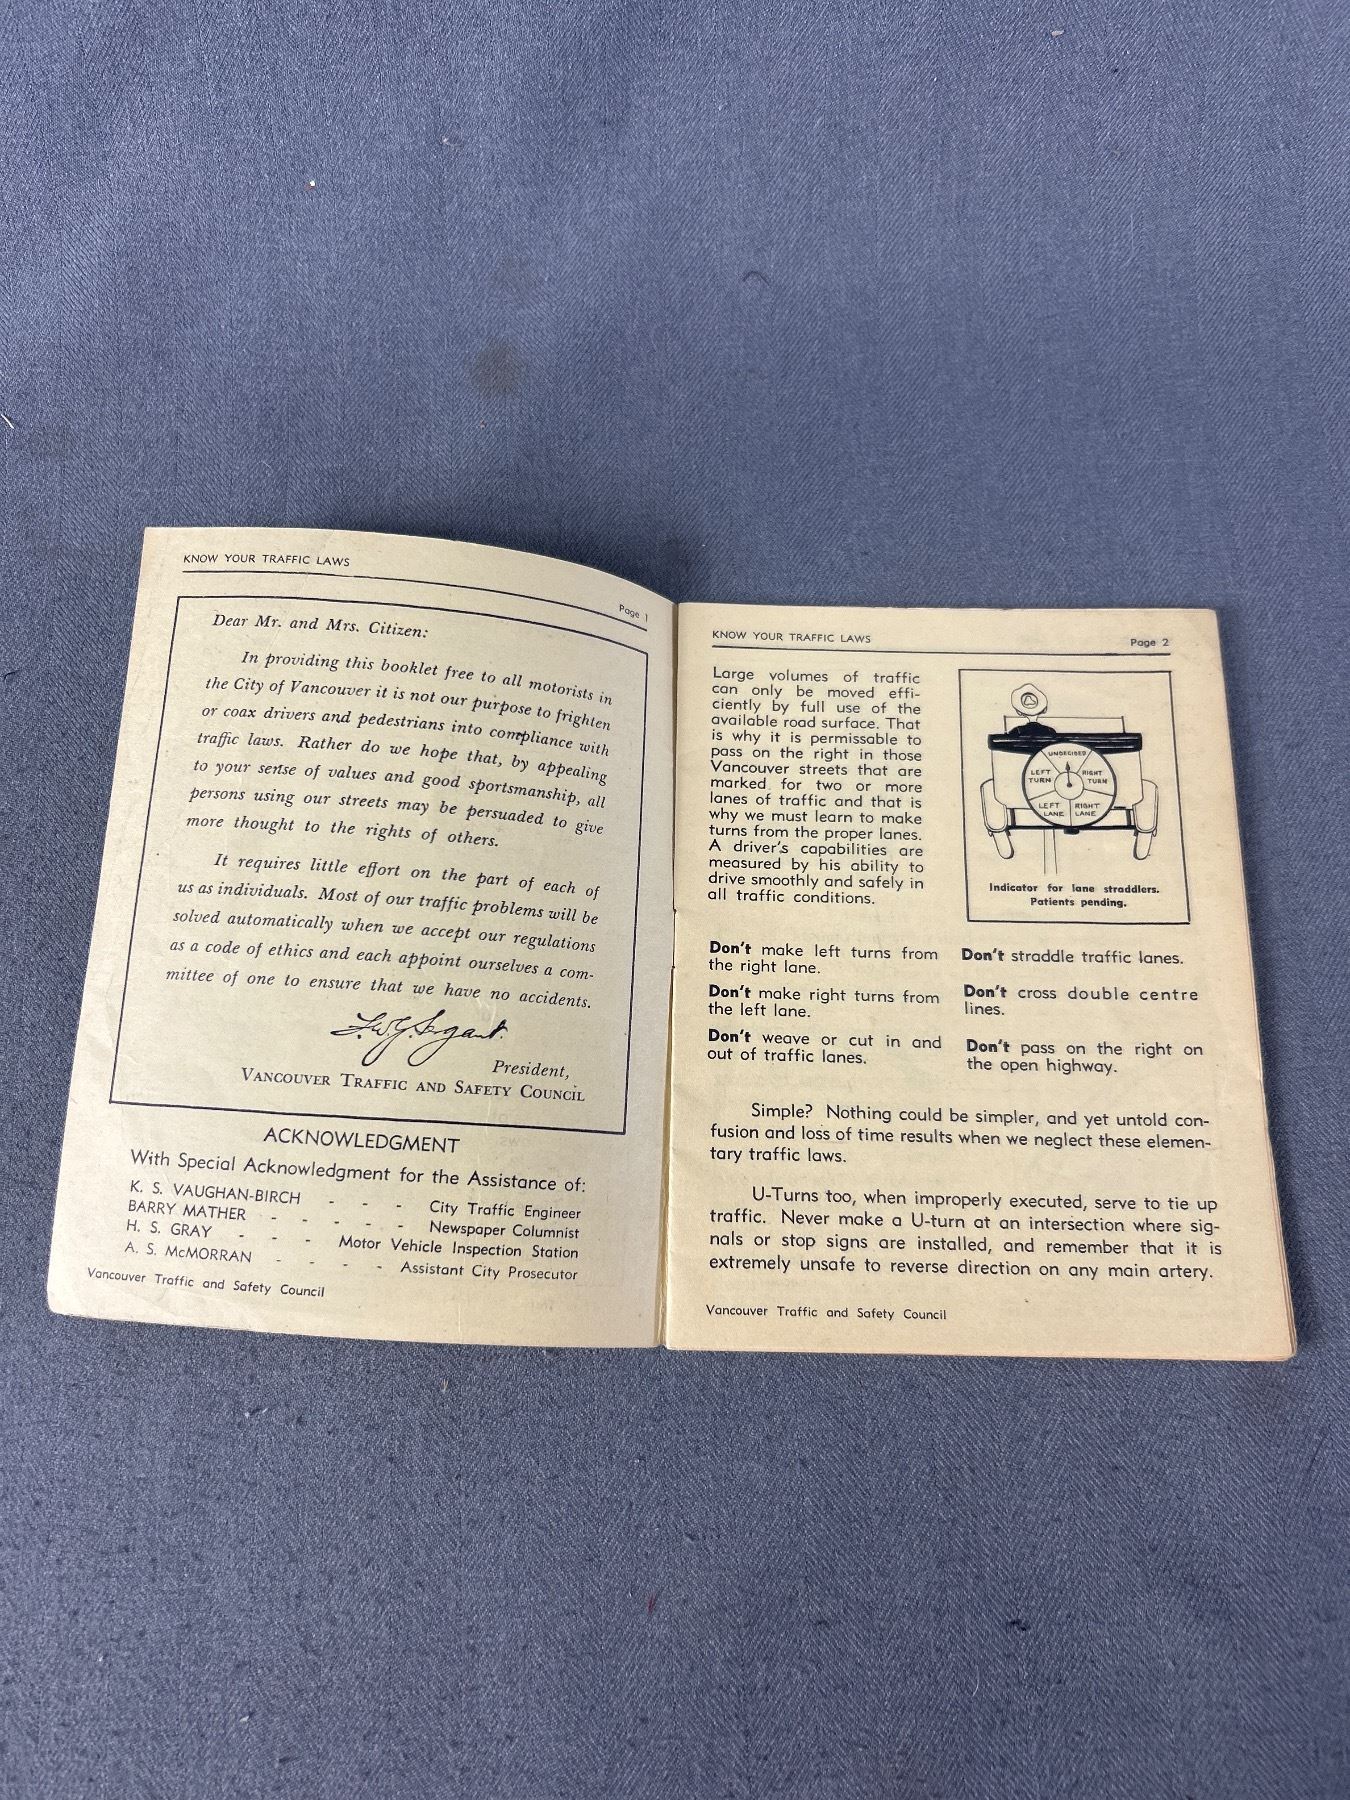 KNOW YOUR TRAFFIC LAWS
Page 1
Dear Mr. and Mrs. Citizen:
In providing this booklet free to all motorists in
the City of Vancouver it is not our purpose to frighten
or coax drivers and pedestrians into compliance with
traffic laws. Rather do we hope that, by appealing
to your sense of values and good sportsmanship, all
persons using our streets may be persuaded to give
more thought to the rights of others.
It requires little effort on the part of each of
us as individuals. Most of our traffic problems will be
solved automatically when we accept our regulations
as a code of ethics and each appoint ourselves a com-
mittee of one to ensure that we have no accidents.
President,
VANCOUVER TRAFFIC AND SAFETY COUNCIL
ACKNOWLEDGMENT
With Special Acknowledgment for the Assistance of:
K. S. VAUGHAN-BIRCH - - - City Traffic Engineer
BARRY MATHER - - - - - Newspaper Columnist
H. S. GRAY - - - Motor Vehicle Inspection Station
A. S. McMORRAN - - - - Assistant City Prosecutor
Vancouver Traffic and Safety Council
KNOW YOUR TRAFFIC LAWS
Page 2
Large volumes of traffic
can only be moved effi-
ciently by full use of the
available road surface. That
is why it is permissable to
pass on the right in those
Vancouver streets that are
marked for two or more
lanes of traffic and that is
why we must learn to make
turns from the proper lanes.
A driver's capabilities are
measured by his ability to
drive smoothly and safely in
all traffic conditions.
UNDECIDED
LEFT TURN
RIGHT TURN
LEFT LANE
RIGHT LANE
Indicator for lane straddlers.
Patients pending.
Don't make left turns from
the right lane.
Don't make right turns from
the left lane.
Don't weave or cut in and
out of traffic lanes.
Don't straddle traffic lanes.
Don't cross double centre
lines.
Don't pass on the right on
the open highway.
Simple? Nothing could be simpler, and yet untold con-
fusion and loss of time results when we neglect these elemen-
tary traffic laws.
U-Turns too, when improperly executed, serve to tie up
traffic. Never make a U-turn at an intersection where sig-
nals or stop signs are installed, and remember that it is
extremely unsafe to reverse direction on any main artery.
Vancouver Traffic and Safety Council